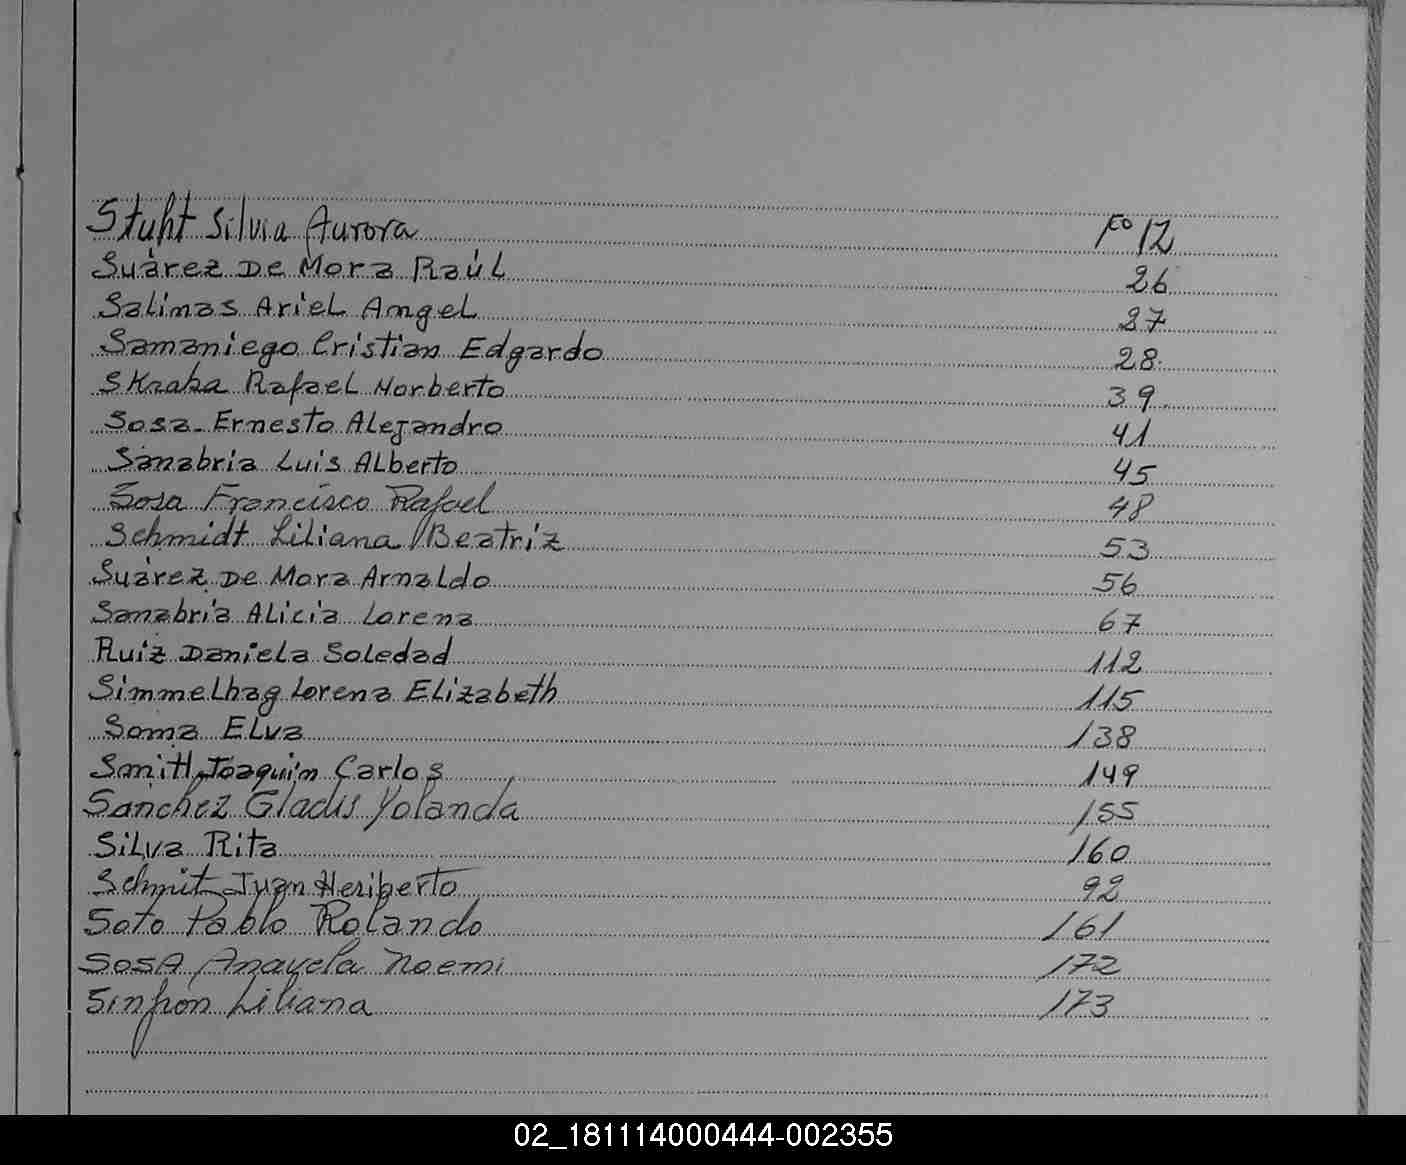 Stuht Silvia Aurora Fº 12
Suárez De Mora Raúl 26
Salinas Ariel Angel 27
Samaniego Cristian Edgardo 28
Skraba Rafael Norberto 39
Sosa Ernesto Alejandro 41
Sanabria Luis Alberto 45
Sosa Francisco Rafael 48
Schmidt Liliana Beatriz 53
Suárez De Mora Arnaldo 56
Sanabria Alicia Lorena 67
Ruiz Daniela Soledad 112
Simmelhag Lorena Elizabeth 115
Soma Elva 138
Smith Joaquin Carlos 149
Sanchez Gladis Yolanda 155
Silva Rita 160
Schmit Juan Heriberto 92
Soto Pablo Rolando 161
Sosa Anayela Noemi 172
Sinfron Liliana 173
02_181114000444-002355